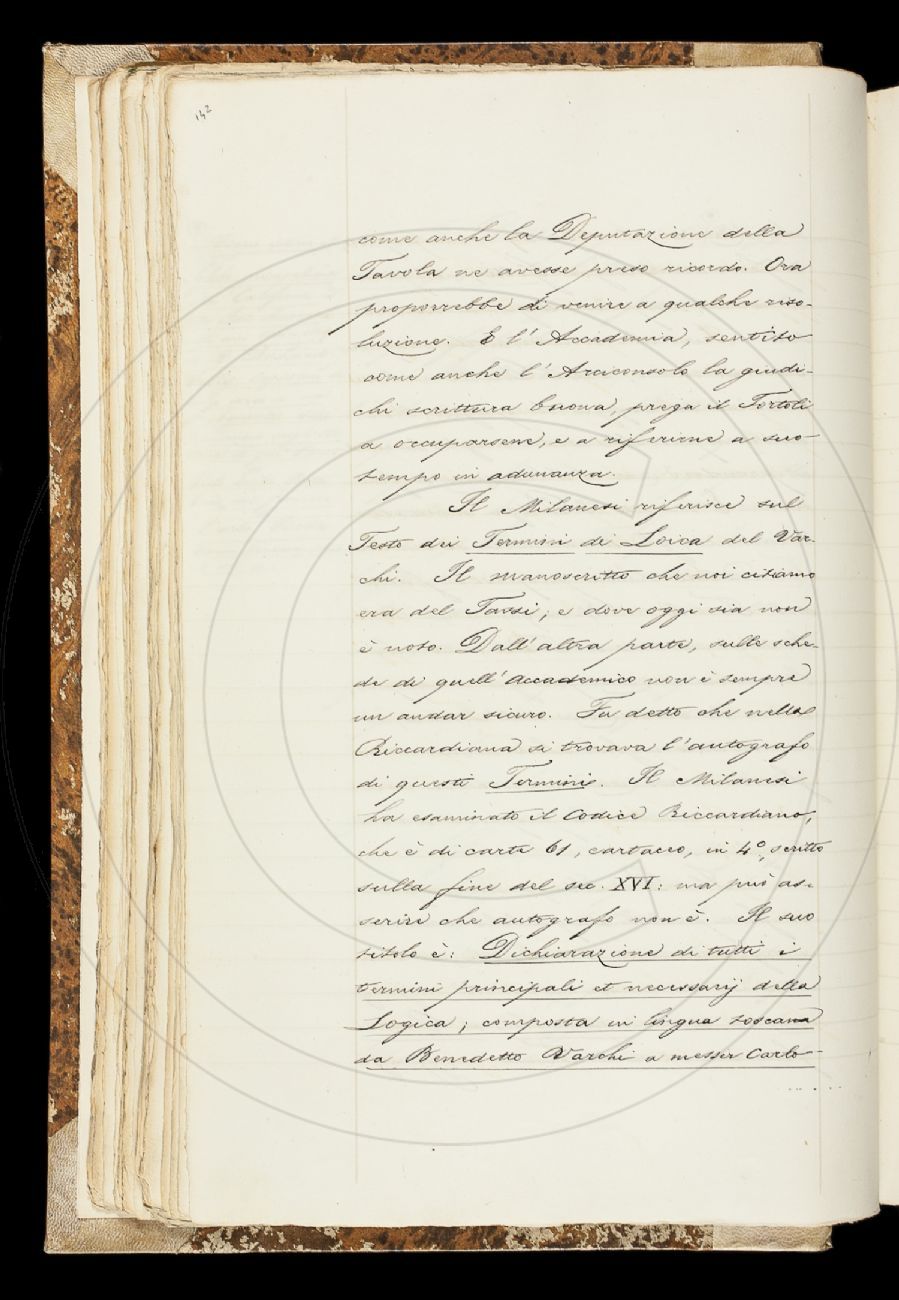 142
come anche la Deputazione della
Tavola ne avesse preso ricordo. Ora
proporrebbe di venire a qualche riso-
luzione. E l'Accademia, sentito
come anche l'Arciconsolo la giudi-
chi scrittura buona, prega il Tortoli
a occuparsene, e a riferirne a suo
tempo in adunanza.
Il Milanesi riferisce sul
Testo dei Termini di Loica del Var-
chi. Il manoscritto che noi citiamo
era del Tassi; e dove oggi sia non
è noto. Dall'altra parte, sulle sche-
de di quell'accademico non è sempre
un andar sicuro. Fu detto che nella
Riccardiana si trovava l'autografo
di questi Termini. Il Milanesi
ha esaminato il Codice Riccardiano,
che è di carte 61, cartaceo, in 4º, scritto
sulla fine del sec. XVI: ma può as-
serire che autografo non è. Il suo
titolo è: Dichiarazione di tutti i
termini principali et necessarij della
Logica; composta in lingua toscana
da Benedetto Varchi a messer Carlo